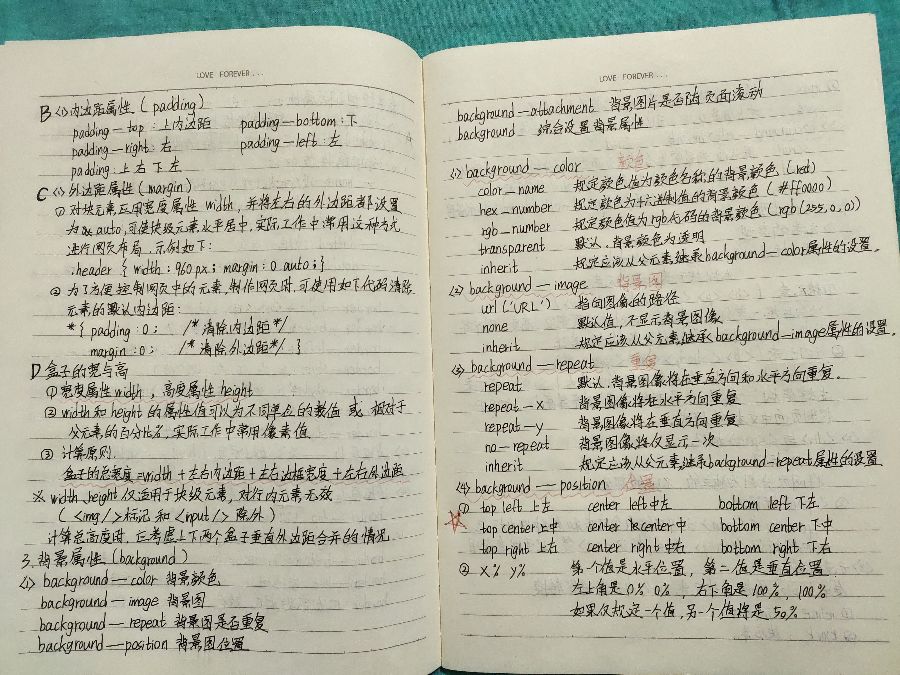 LOVE FOREVER...
B <1> 内边距属性 (padding)
padding—top : 上内边距 padding—bottom : 下
padding—right : 右 padding—left : 左
padding : 上 右 下 左
C <1> 外边距属性 (margin)
① 对块元素应用宽度属性 width, 并将左右的外边距都设置
为 auto, 可使块级元素水平居中, 实际工作中常用这种方式
进行网页布局. 示例如下:
.header { width : 960px ; margin : 0 auto ; }
② 为了方便控制网页中的元素, 制作网页时, 可使用如下代码清除
元素的默认内边距:
* { padding : 0 ; /* 清除内边距 */
margin : 0 ; /* 清除外边距 */ }
D 盒子的宽与高
① 宽度属性 width , 高度属性 height
② width 和 height 的属性值可以为不同单位的数值 或 相对于
父元素的百分比, 实际工作中常用像素值
③ 计算原则.
盒子的总宽度 = width + 左右内边距 + 左右边框宽度 + 左右外边距
※ width, height 仅适用于块级元素, 对行内元素无效
( <img /> 标记 和 <input /> 除外 )
计算总高度时, 应考虑上下两个盒子垂直外边距合并的情况
3. 背景属性 (background)
<1> background—color 背景颜色
background—image 背景图
background—repeat 背景图是否重复
background—position 背景图位置
LOVE FOREVER...
background—attachment 背景图片是否随页面滚动
background 综合设置背景属性
<1> background—color 颜色
color_name 规定颜色值为颜色名称的背景颜色 (red)
hex_number 规定颜色为十六进制值的背景颜色 (#ff0000)
rgb_number 规定颜色值为rgb代码的背景颜色 (rgb(255,0,0))
transparent 默认. 背景颜色为透明
inherit 规定应该从父元素继承background—color属性的设置.
<2> background—image 背景图
url ('URL') 指向图像的路径
none 默认值, 不显示背景图像
inherit 规定应该从父元素继承background—image属性的设置.
<3> background—repeat 重复
repeat 默认. 背景图像将在垂直方向和水平方向重复.
repeat—x 背景图像将在水平方向重复
repeat—y 背景图像将在垂直方向重复
no—repeat 背景图像将仅显示一次
inherit 规定应该从父元素继承background—repeat属性的设置
<4> background—position 位置
① top left 上左 center left 中左 bottom left 下左
top center 上中 center center 中 bottom center 下中
top right 上右 center right 中右 bottom right 下右
② X% y% 第一个值是水平位置, 第二值是垂直位置.
左上角是 0% 0% ; 右下角是 100%, 100%
如果仅规定一个值, 另一个值将是 50%